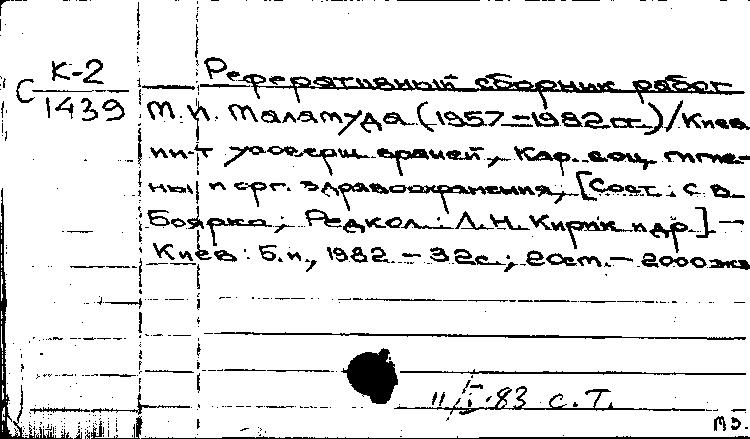 С К-2
1439
Реферативный сборник работ
М.И. Маламуда (1957-1982 гг.) / Киев.
ин-т усоверш. врачей, Каф. соц. гигие-
ны и орг. здравоохранения; [Сост.: С В
Боярко; Редкол.: Л.Н. Кирик и др.] —
Киев: Б.и., 1982 - 32с.; 20см. — 2000 экз
11/I.83 с.т.